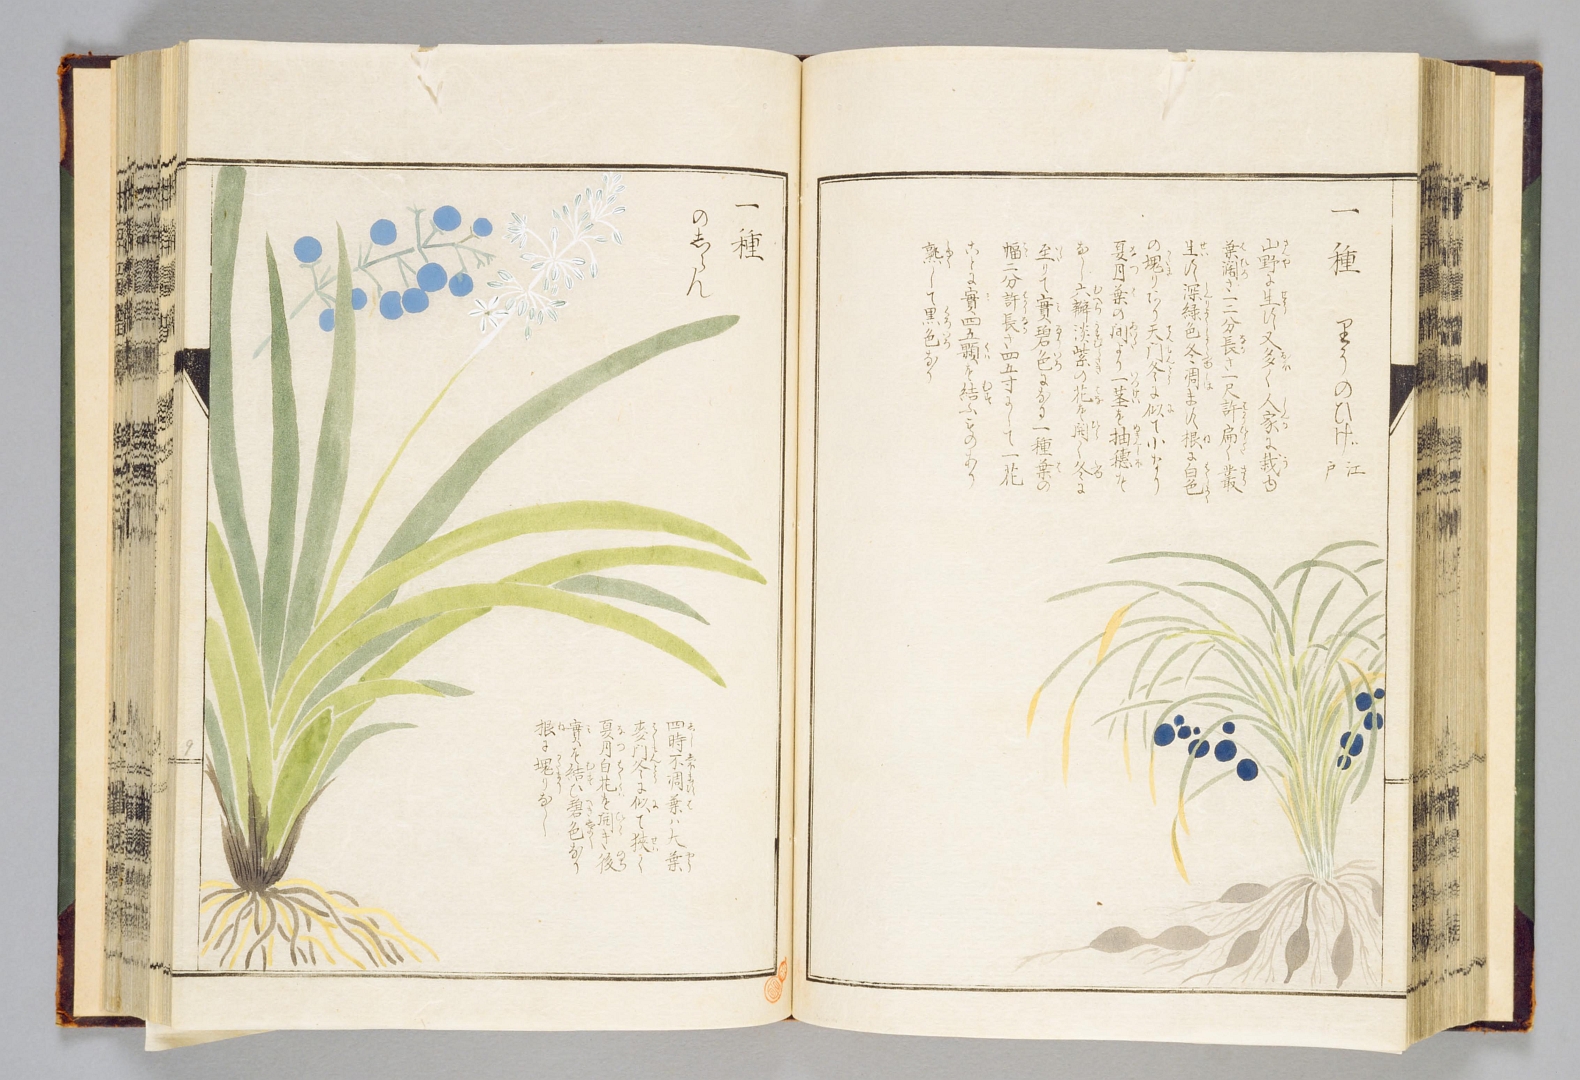 一種 りうのひげ 江戸
山野に生ず又多く人家に栽ゆ
葉濶さ一二分長さ一尺許扁く叢
生ず深緑色冬凋まず根に白色
の塊りあり天門冬に似て小なり
夏月葉の间より一茎を抽穂を
なし六瓣淡紫の花を開く冬に
至りて實碧色になる一種葉の
幅二分許長さ四五寸にして一花
ごとに實四五顆を結ぶものあり
熟して黒色なり
一種
のしらん
四時不凋葉ハ大葉
麦門冬に似て狭く
夏月白花を開き後
實を結び碧色なり
根に塊りなし